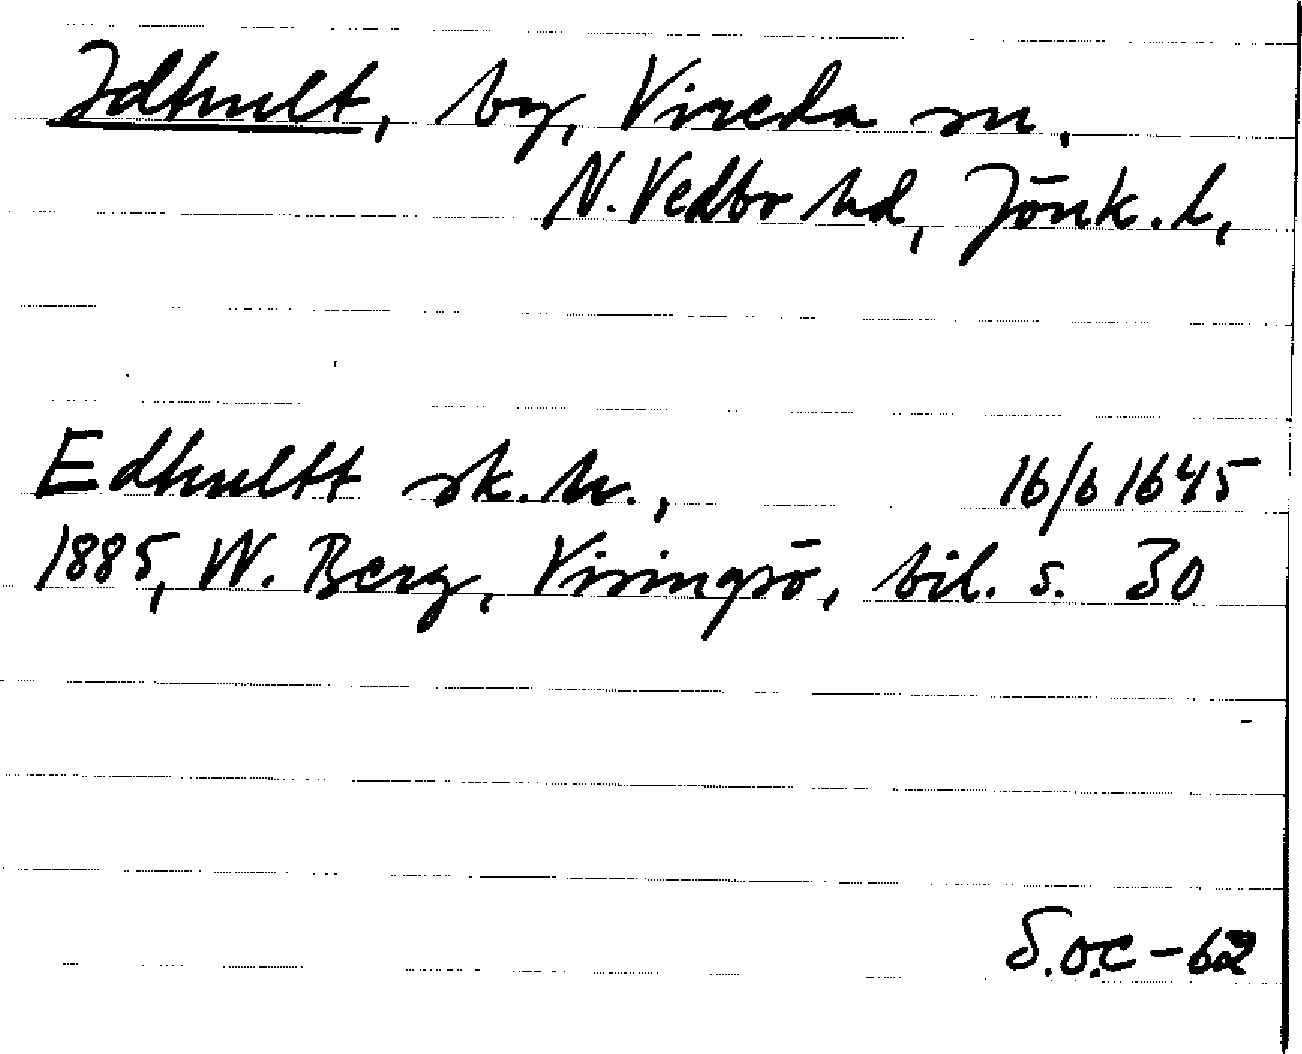 Idhult, by, Vireda sn.
N. Vedbo hd, Jönk. l,
Edhultt sk. h., 16/6 1645
1885, W. Berg, Visingsö, bil. s. 30
S.O.C - 62